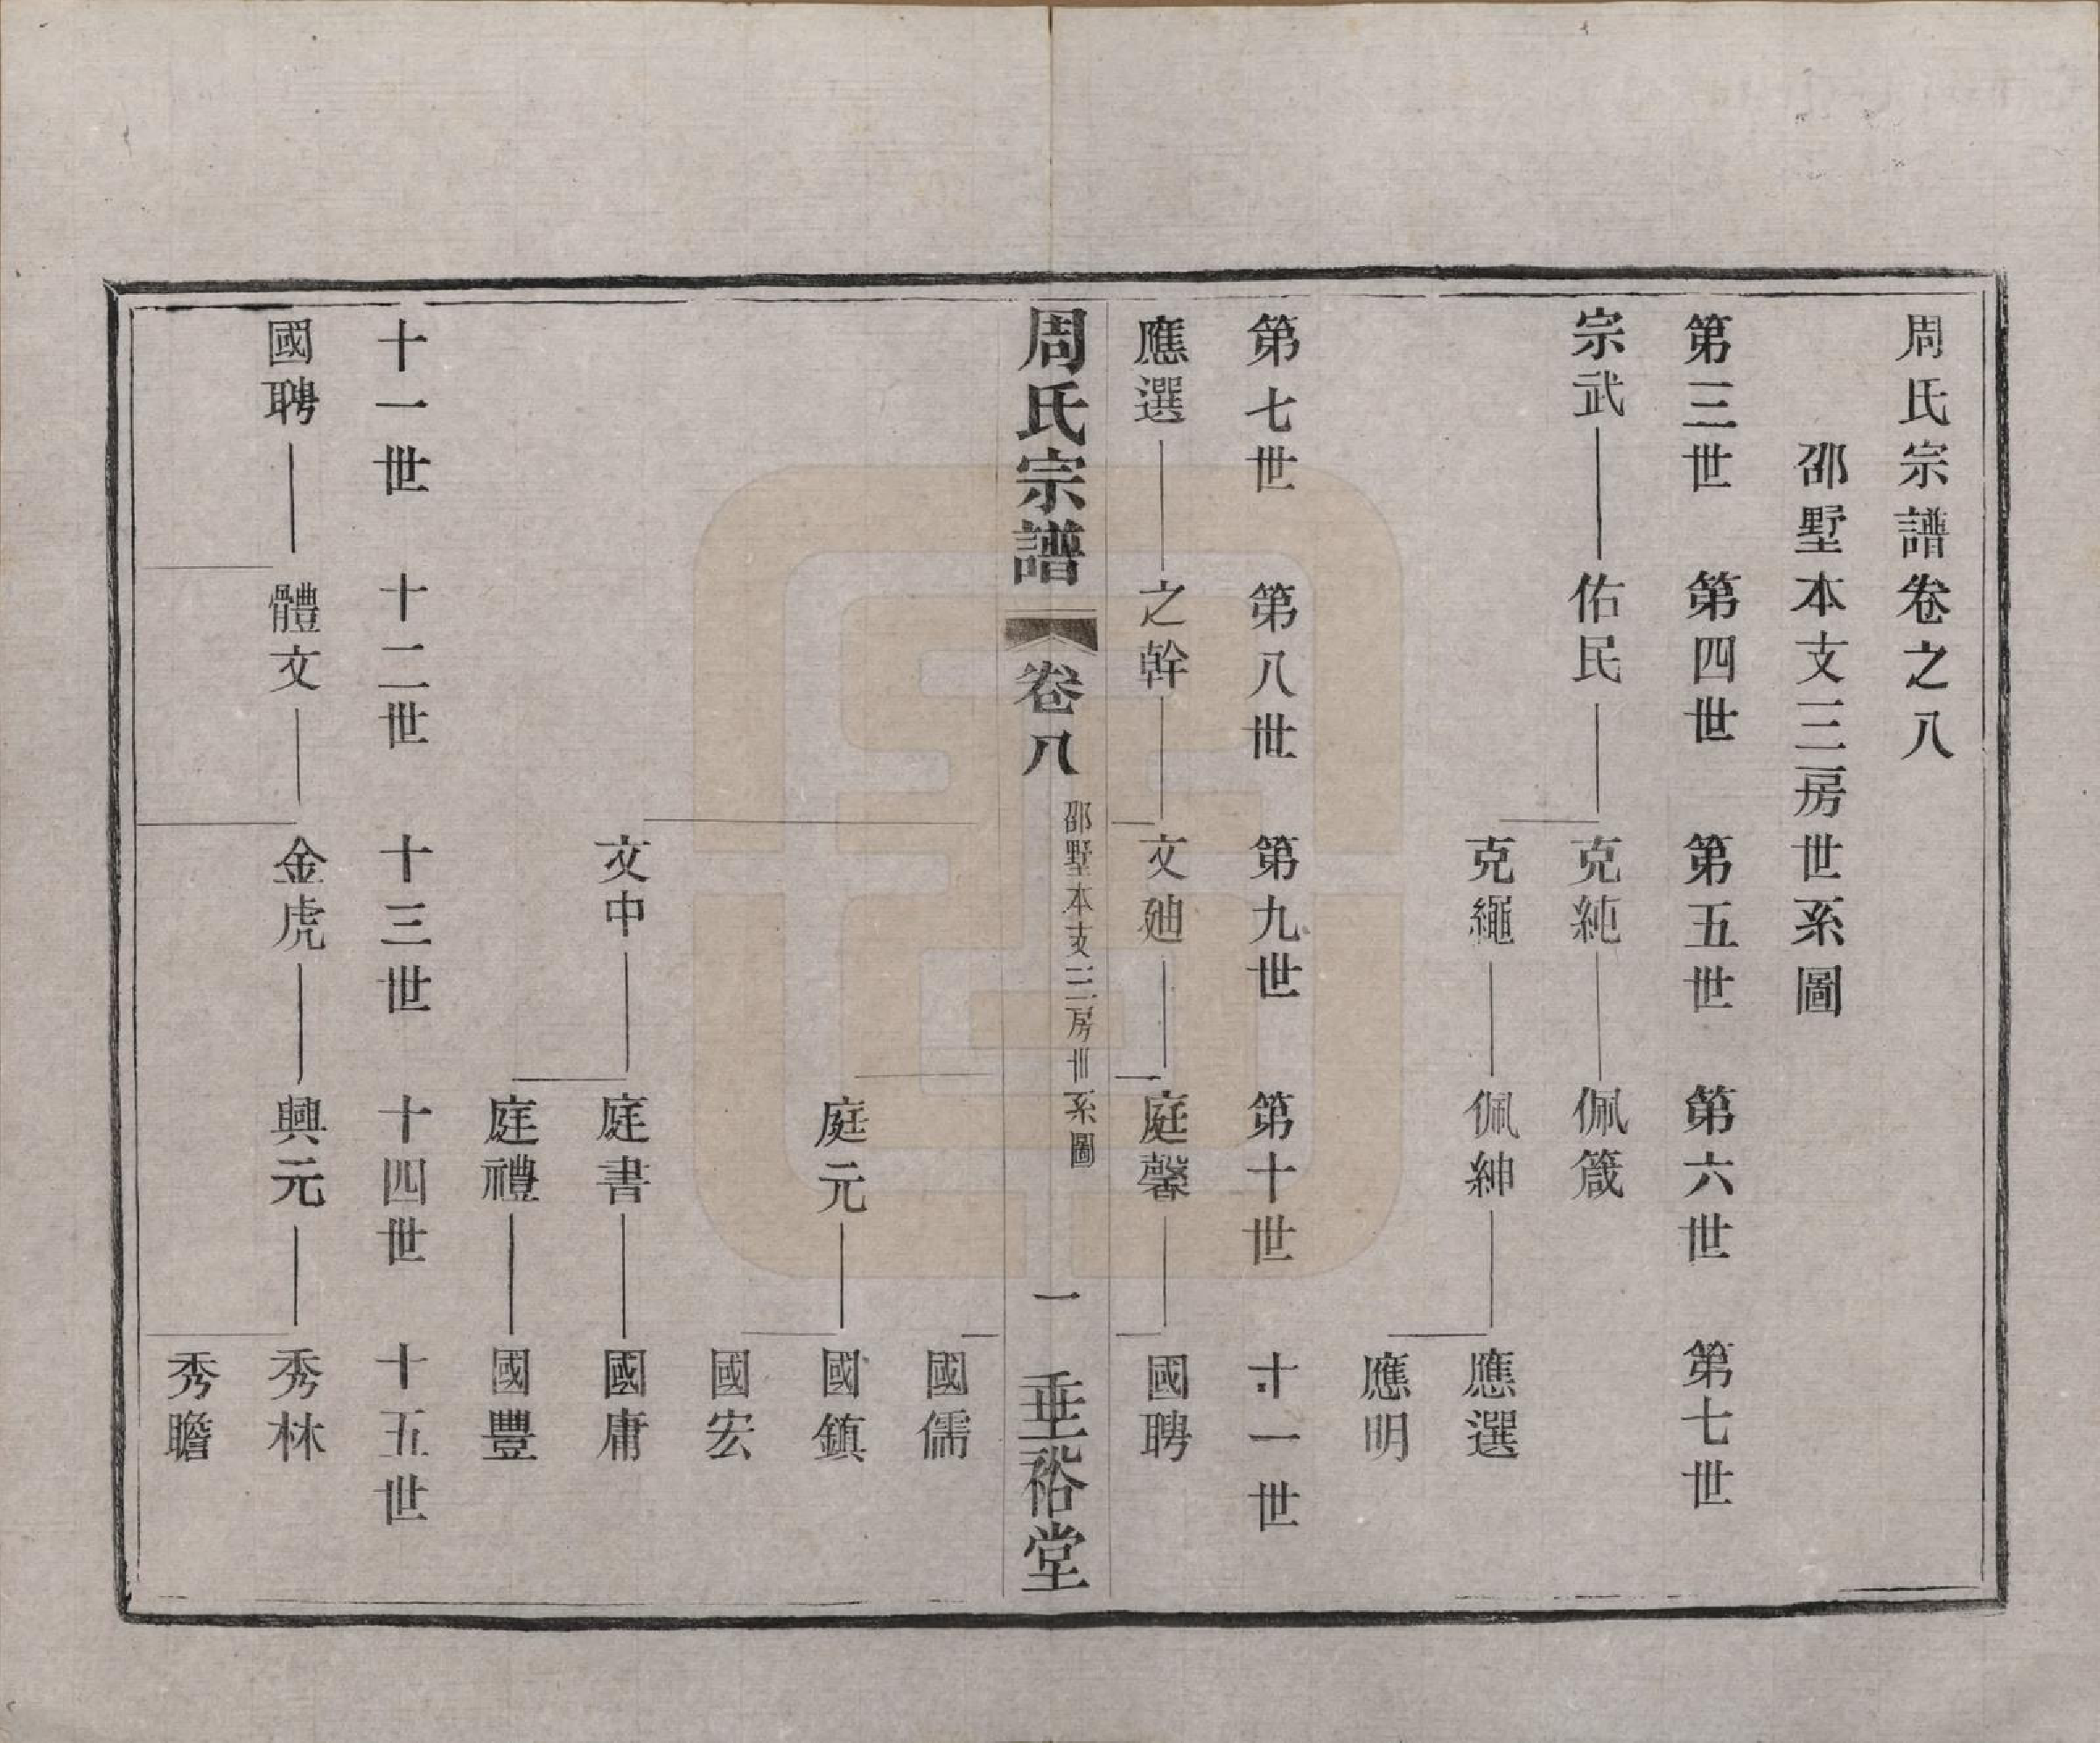 周氏宗譜卷之八
邵墅本支三房世系圖
第三世 第四世 第五世 第六世 第七世
宗武 佑民 克純 佩箴
克繩 佩紳 應選
應明
第七世 第八世 第九世 第十世 十一世
應選 之幹 文廸 庭馨 國聘
周氏宗譜 卷八 邵墅本支三房世系圖 一 垂裕堂
國儒
庭元 國鎮
國宏
文中 庭書 國庸
庭禮 國豐
十一世 十二世 十三世 十四世 十五世
國聘 體文 金虎 興元 秀林
秀瞻